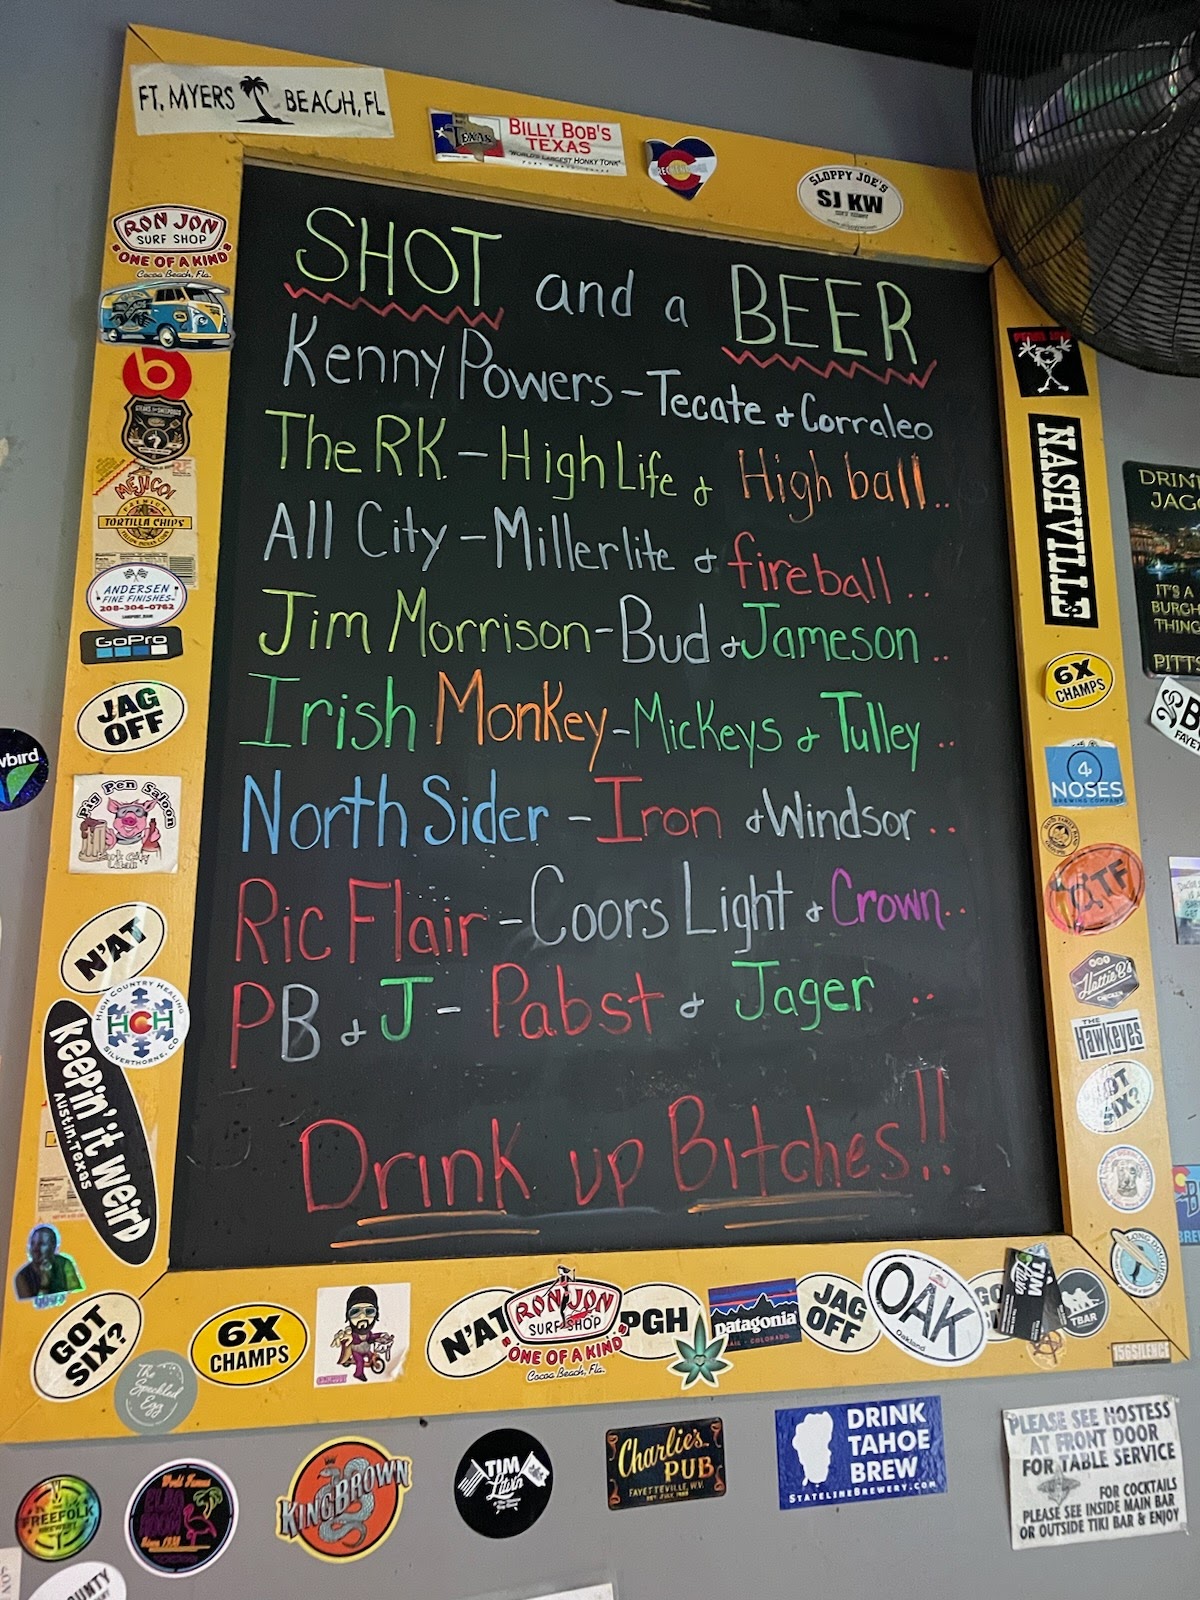 FT. MYERS BEACH, FL
TEXAS
BILLY BOB'S
TEXAS
"WORLD'S LARGEST HONKY TONK"
SLOPPY JOE'S
SJ KW
RON JON
SURF SHOP
"ONE OF A KIND"
Cocoa Beach, Fla.
SHOT and a BEER
Kenny Powers - Tecate & Corraleo
The RK - High Life & High ball..
All City - Millerlite & fireball..
Jim Morrison - Bud & Jameson..
Irish Monkey - Mickeys & Tulley..
North Sider - Iron & Windsor..
Ric Flair - Coors Light & Crown..
PB & J - Pabst & Jager ..
Drink up Bitches!!
b
MEJICO!
PREMIUM
TORTILLA CHIPS
ANDERSEN
FINE FINISHES
208-304-0762
GoPro
JAG
OFF
wbird
Pig Pen Saloon
Park City
Utah
N'AT
HIGH COUNTRY HEALING
HCH
SILVERTHORNE, CO
Keepin' it Weird
Austin, Texas
NASHVILLE
6X
CHAMPS
4
NOSES
BREWING COMPANY
QTF
Hattie B's
THE
Hawkeyes
GOT
SIX?
LONG DOGGERS
DRIN
JAGO
IT'S A
BURGH
THING
PITTS
FAYET
GOT
SIX?
The
Speckled
Egg
6X
CHAMPS
N'AT
RON JON
SURF SHOP
"ONE OF A KIND"
Cocoa Beach, Fla.
PGH
patagonia
JAG
OFF
OAK
Oakland
TIM
TBAR
156SILENCE
FREEFOLK
BREWERY
World Famous
KING BROWN
TIM
Litvin
Charlie's
PUB
FAYETTEVILLE, WV.
DRINK
TAHOE
BREW
STATELINEBREWERY.COM
PLEASE SEE HOSTESS
AT FRONT DOOR
FOR TABLE SERVICE
FOR COCKTAILS
PLEASE SEE INSIDE MAIN BAR
OR OUTSIDE TIKI BAR & ENJOY
UNTY